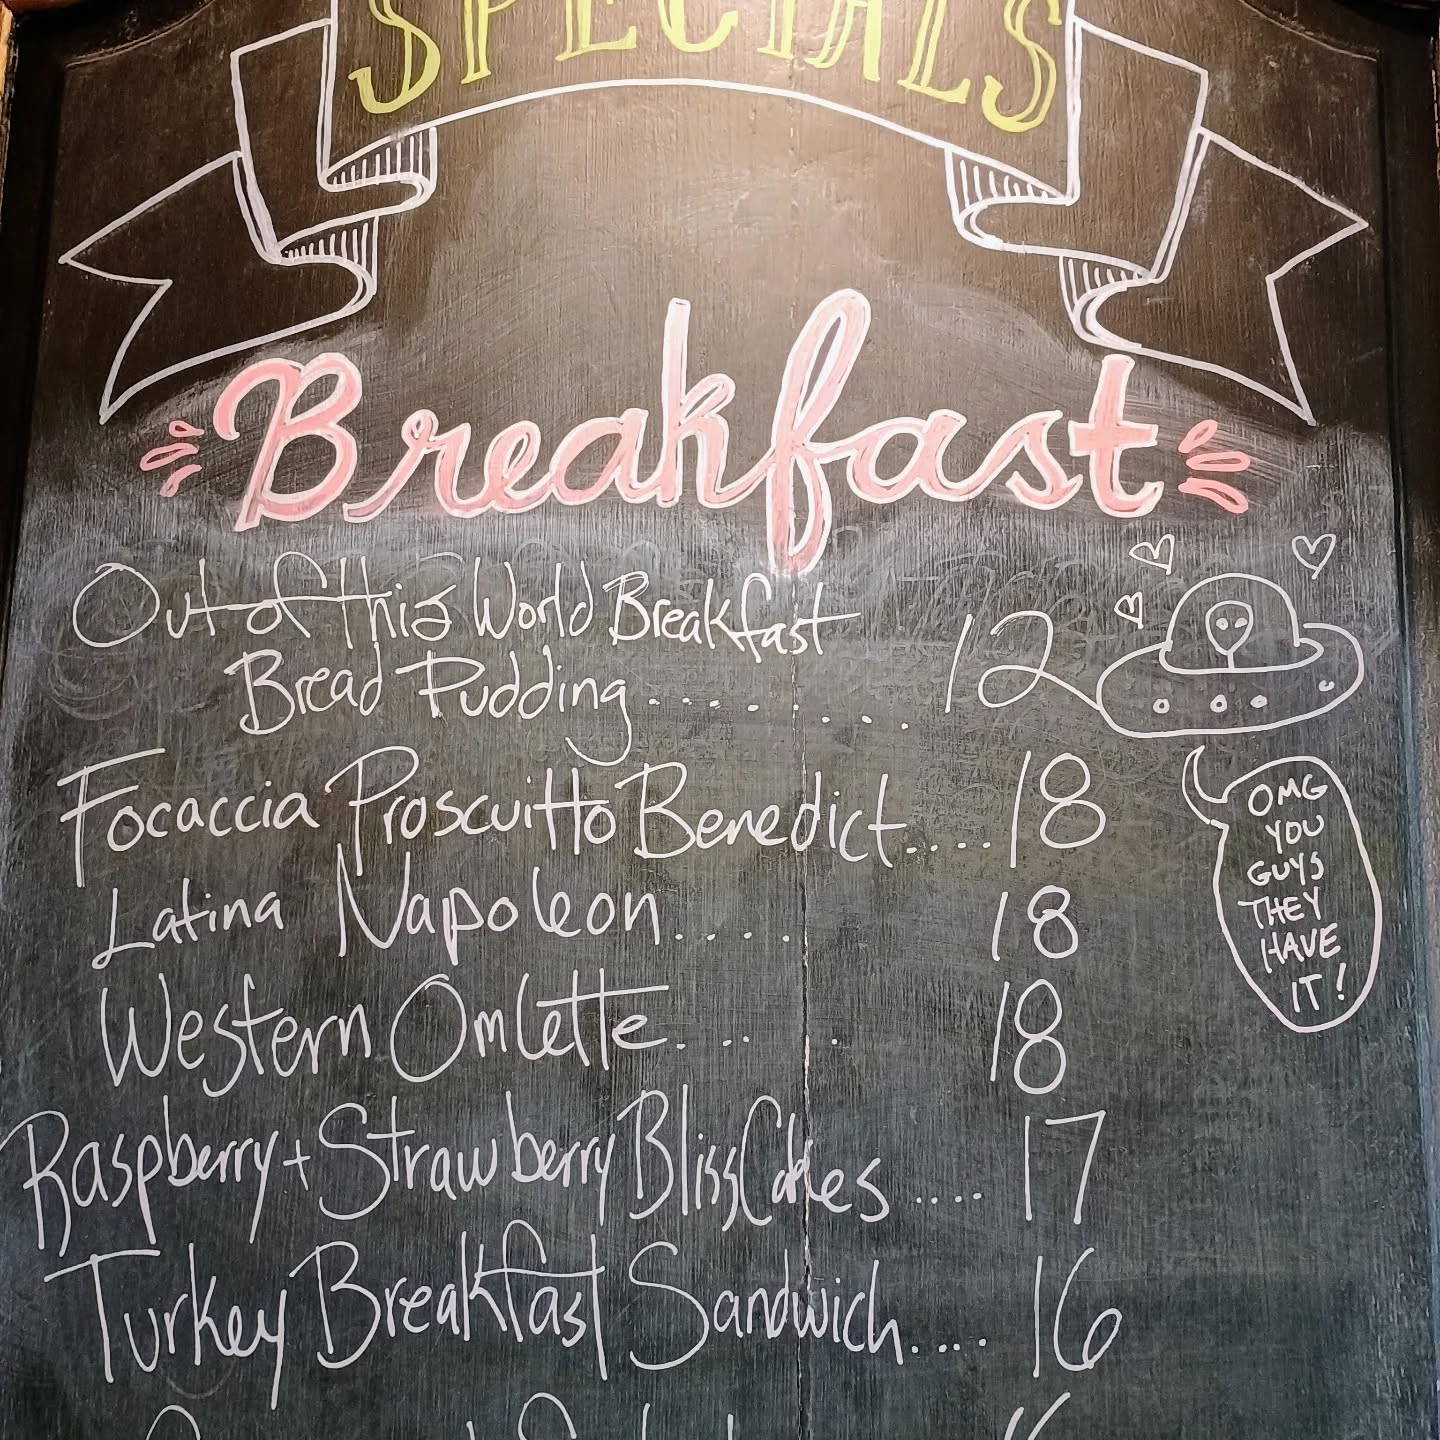 SPECIALS
Breakfast
Out of this World Breakfast
Bread Pudding......... 12
Focaccia Proscuitto Benedict.... 18
Latina Napoleon..... 18
Western Omlette..... 18
Raspberry + Strawberry Bliss Cakes .... 17
Turkey Breakfast Sandwich.... 16
OMG
YOU
GUYS
THEY
HAVE
IT!